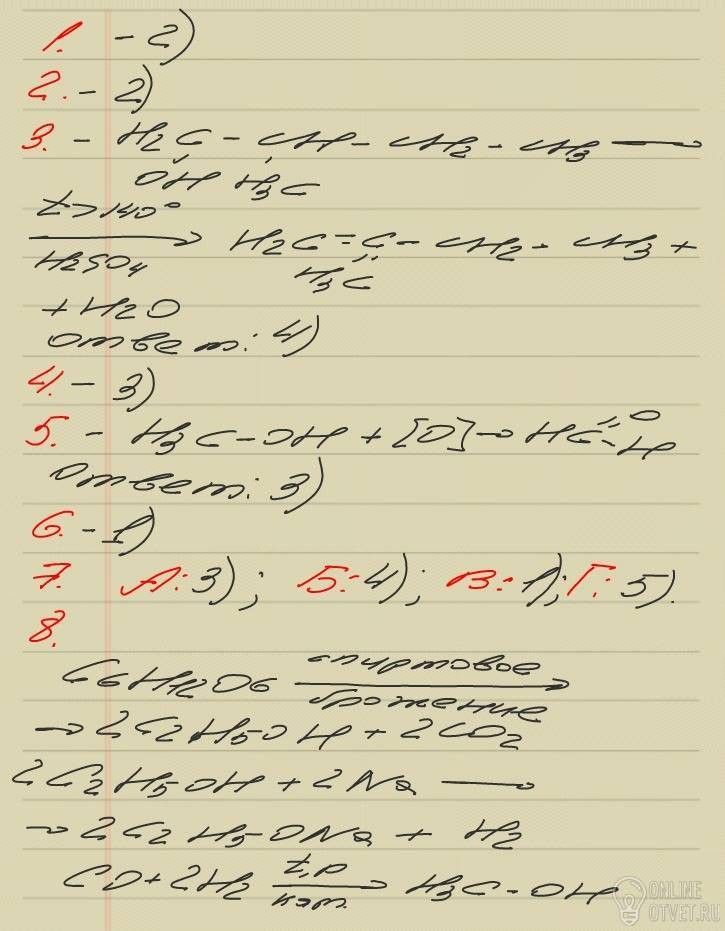 1. - 2)
2. - 2)
3. - H₂C - CH - CH₂ - CH₃ ⟶
OH H₃C
t>140°
⟶ H₂C = C - CH₂ - CH₃ +
H₂SO₄ H₃C
+ H₂O
Ответ: 4)
4. - 3)
5. - H₃C-OH + [O] → HC=O
-H
Ответ: 3)
6. - 1)
7. А: 3); Б: 4); В: 1); Г: 5).
8.
C₆H₁₂O₆ спиртовое ⟶
брожение
→ 2C₂H₅OH + 2CO₂
2C₂H₅OH + 2Na ⟶
→ 2C₂H₅-ONa + H₂
CO + 2H₂ t,p ⟶ H₃C-OH
кат.
ONLINE
OTVET.RU